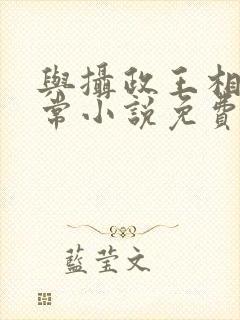 與攝政王相
常小說免費
藍莹文